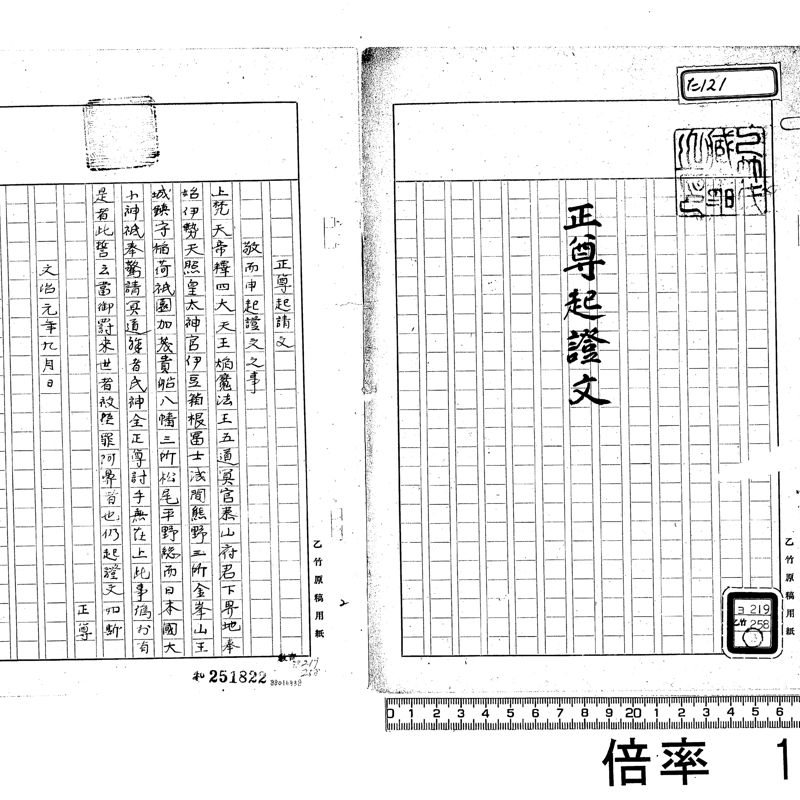 た121
正尊起證文
乙竹原稿用紙
ヨ 219
乙竹 258
正尊起請文
敬而申起證文之事
上梵天帝釋四大天王焔魔法王五道冥官泰山府君下界地奉
始伊勢天照皇太神宮伊豆箱根冨士浅間熊野三所金峯山王
城鎮守稲荷祇園加茂貴船八幡三所松尾平野総而日本國大
小神祇奉驚請冥道殊者氏神全正尊討手無在上此事偽於有
是者此誓言當御罸来世者放墜罪阿鼻者也仍起證文如斯
正尊
文治元年九月日
乙竹原稿用紙
2
和 251822
0 1 2 3 4 5 6 7 8 9 20 1 2 3 4 5 6
倍率 1